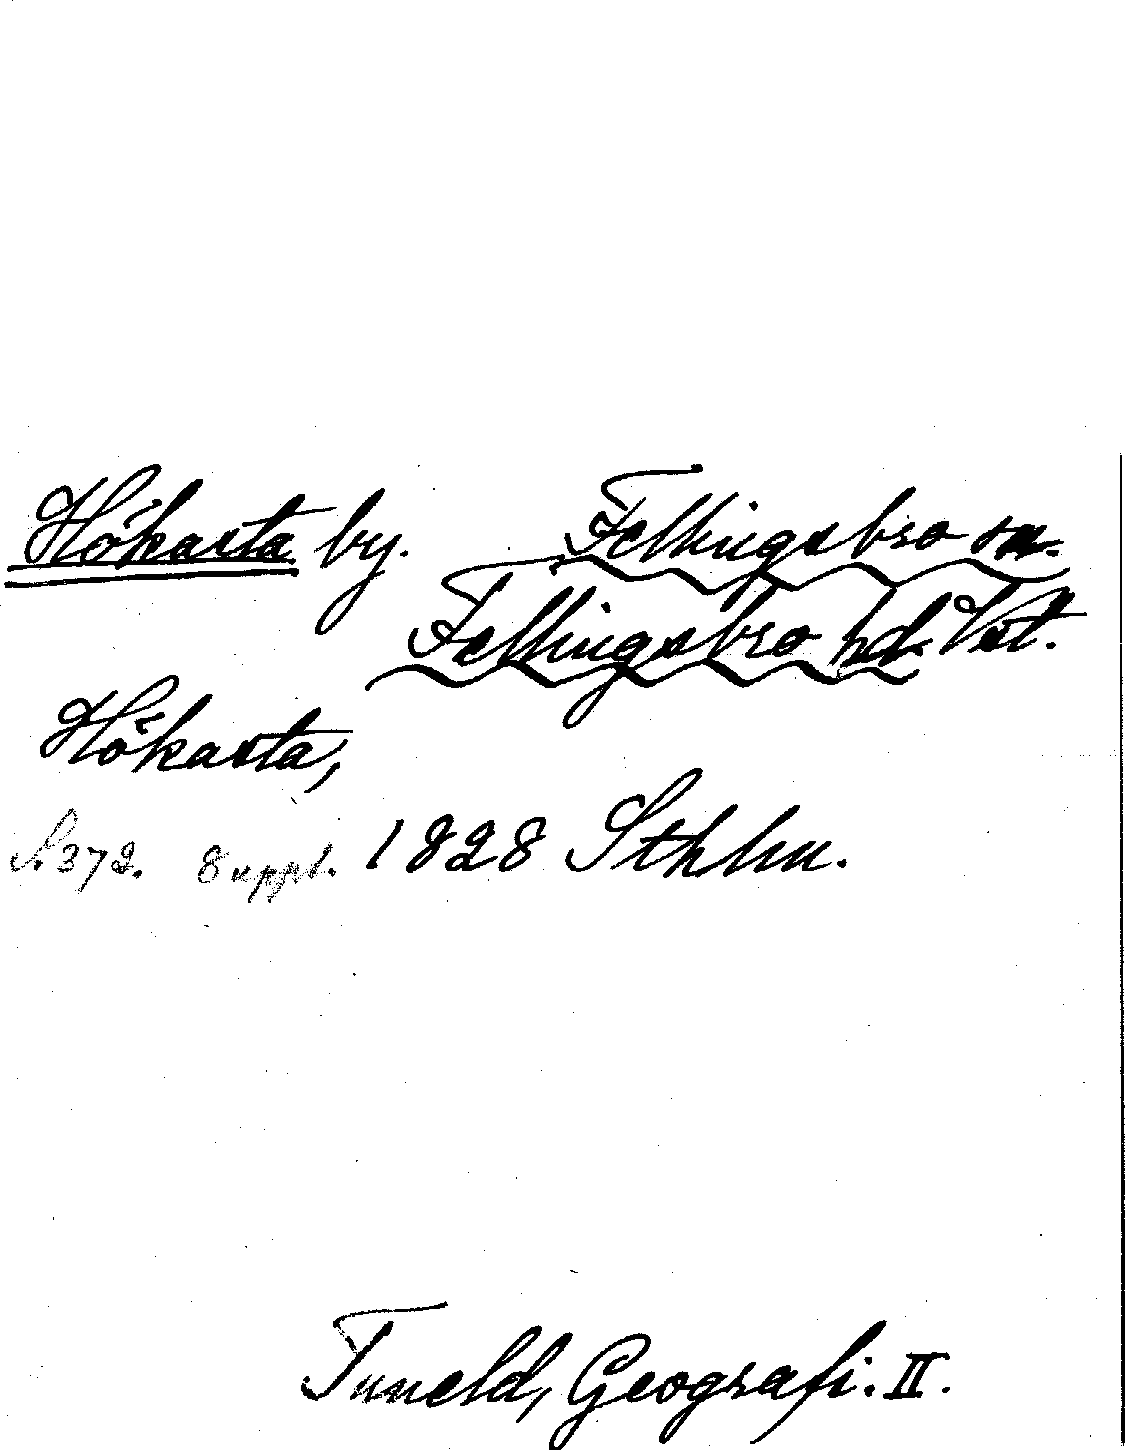 Hökasta by. Fellingsbro sn.
Fellingsbro hd. Vstl.
Hökasta,
N. 372. 8 uppl. 1828 Sthlm.
Tuneld, Geografi. II.